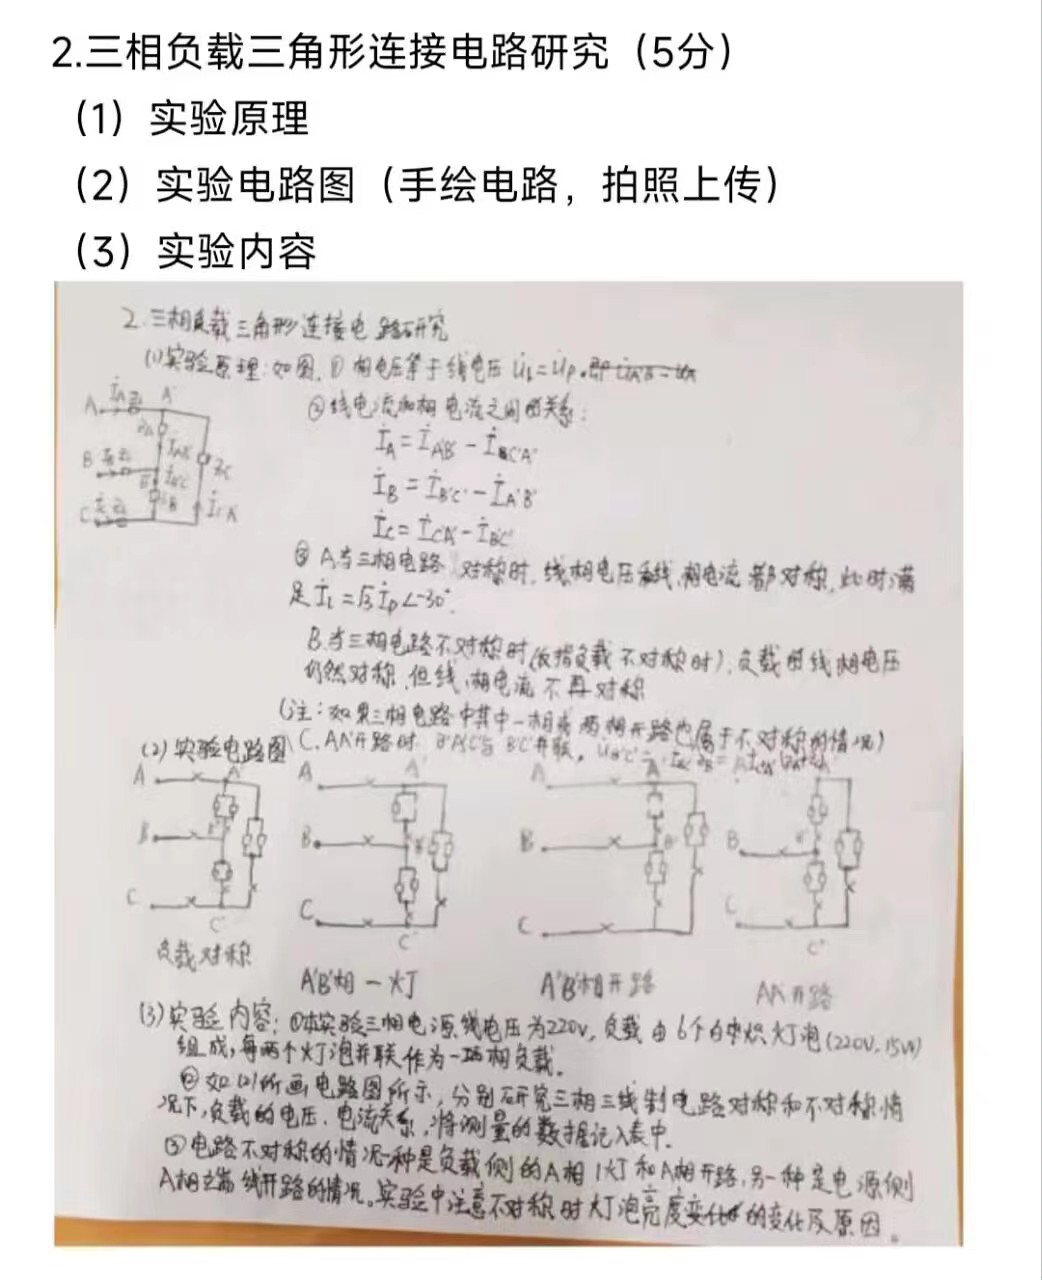 2.三相负载三角形连接电路研究（5分）
（1）实验原理
（2）实验电路图（手绘电路，拍照上传）
（3）实验内容
2.三相负载三角形连接电路研究
(1)实验原理:如图.① 相电压等于线电压
②线电流和相电流之间的关系:
③ A.当三相电路 对称时,线,相电压和线,相电流都对称,此时满
足
B.当三相电路不对称时(仅指负载不对称时),负载的线相电压
仍然对称,但线,相电流不再对称
(注:如果三相电路中其中一相或两相开路也属于不对称的情况)
(2)实验电路图
A A'
B
C
C'
负载对称
A A'
B B'
C
C'
A'B'相一灯
A A'
B B'
C
A'B'相开路
B
C
C'
AA'开路
(3)实验内容:①本实验三相电源线电压为220v,负载由6个白炽灯泡(220V,15W)
组成,每两个灯泡并联作为一相负载。
②如(2)所画电路图所示,分别研究三相三线制电路对称和不对称情
况下,负载的电压、电流关系,将测量的数据记入表中.
③电路不对称的情况一种是负载侧的A相1灯和A相开路,另一种是电源侧
A相端线开路的情况。实验中注意不对称时灯泡亮度的变化及原因。